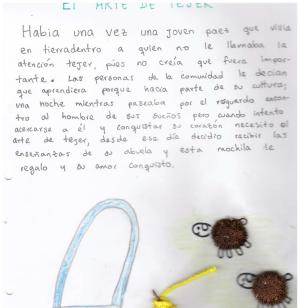 El ARTE DE TEJER
Habia una vez una joven paez que vivia
en tierradentro a quien no le llamaba la
atención tejer, pues no creía que fuera impor-
tante. Las personas de la comunidad le decian
que aprendiera porque hacía parte de su cultura;
una noche mientras paseaba por el resguardo encon-
tro al hombre de sus sueños pero cuando intento
acercarse a él y conquistar su corazón necesito el
arte de tejer, desde ese día decidio recibir las
enseñanzas de su abuela y esta mochila le
regalo y su amor conquisto.